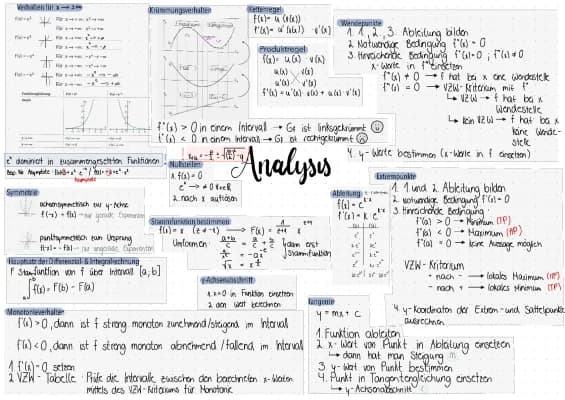 Verhalten für x → ±∞
Krümmungsverhalten
f''(x) > 0 in einem Intervall → Gf ist linksgekrümmt
f''(x) < 0 in einem Intervall → Gf ist rechtsgekrümmt
Kettenregel
f(x) = u(v(x))
f'(x) = u'(v(x)) · v'(x)
Produktregel
f(x) = u(x) · v(x)
u(x) v(x)
u'(x) v'(x)
f'(x) = u'(x) · v(x) + u(x) · v'(x)
Wendepunkte
1. 1, 2, 3. Ableitung bilden
2. Notwendige Bedingung f''(x) = 0
3. Hinreichende Bedingung f''(x) = 0 ; f'''(x) ≠ 0
x-Werte in f''' einsetzen
f'''(x) ≠ 0 → f hat bei x eine Wendestelle
f'''(x) = 0 → VZW-Kriterium mit f''
↳ VZW → f hat bei x
Wendestelle
↳ kein VZW → f hat bei x
keine Wende-
stelle
4. y-Werte bestimmen (x-Werte in f einsetzen)
Analysis
eˣ dominiert in zusammengesetzten Funktionen
Nullstellen
1. f(x) = 0
eˣ → ≠ 0
2. nach x auflösen
Symmetrie
achsensymmetrisch zur y-Achse
f(-x) = f(x) → nur gerade Exponenten
punktsymmetrisch zum Ursprung
f(-x) = -f(x) → nur ungerade Exponenten
Stammfunktion bestimmen
Umformen
dann erst
Stammfunktion
Ableitung
f(x) = eˣ
f'(x) = eˣ
Extrempunkte
1. 1 und 2. Ableitung bilden
2. notwendige Bedingung f'(x) = 0
3. Hinreichende Bedingung:
f''(x) > 0 Minimum (TP)
f''(x) < 0 Maximum (HP)
f''(x) = 0 keine Aussage möglich
VZW-Kriterium
+ nach - → lokales Maximum (HP)
- nach + → lokales Minimum (TP)
4. y-Koordinaten der Extrem- und Sattelpunkte
ausrechnen
Hauptsatz der Differenzial- & Integralrechnung
F Stammfunktion von f über Intervall [a,b]
∫ f(x) = F(b) - F(a)
y-Achsenabschnitt
1. x=0 in Funktion einsetzen
2. den Wert berechnen
Monotonieverhalten
f'(x) > 0, dann ist f streng monoton zunehmend/steigend im Intervall
f'(x) < 0, dann ist f streng monoton abnehmend/fallend im Intervall
1. f'(x) = 0 setzen
2. VZW-Tabelle : Prüfe die Intervalle zwischen den berechneten x-Werten
mittels des VZW-Kriteriums für Monotonie
Tangente
y = mx + c
1. Funktion ableiten
2. x-Wert von Punkt in Ableitung einsetzen
↳ dann hat man Steigung m
3. y-Wert von Punkt bestimmen
4. Punkt in Tangentengleichung einsetzen
↳ y-Achsenabschnitt